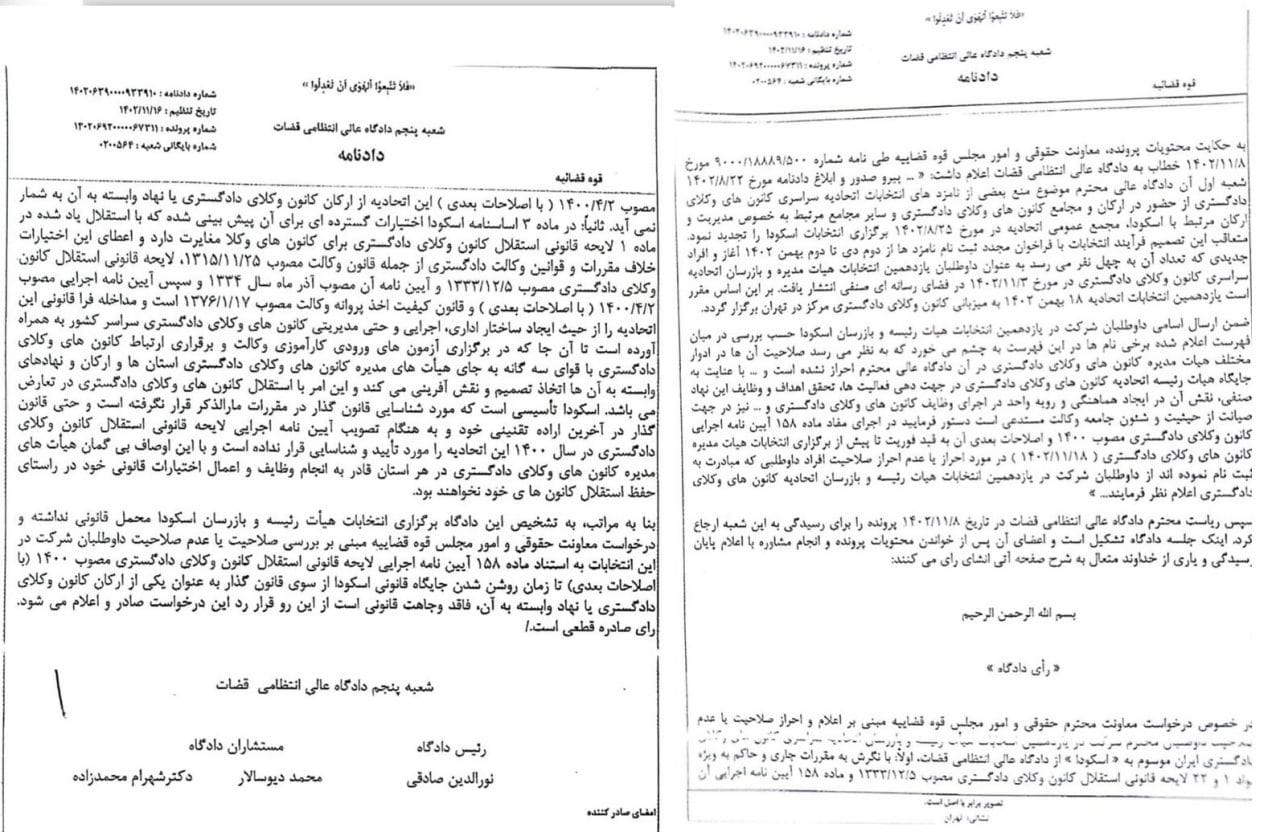 «فَلاَ تَتَّبِعوُا اَلهَوَی اَنْ تَعْدِلُوا»
شماره دادنامه : ۱۴۰۲۰۶۳۹۰۰۰۰۹۳۳۹۱۰
تاریخ تنظیم : ۱۴۰۲/۱۱/۱۶
شماره پرونده : ۱۴۰۲۰۶۹۲۰۰۰۰۰۶۷۳۱۱
شماره بایگانی شعبه : ۰۲۰۰۵۶۴
شعبه پنجم دادگاه عالی انتظامی قضات
دادنامه
قوه قضائیه
به حکایت محتویات پرونده، معاونت حقوقی و امور مجلس قوه قضاییه طی نامه شماره ۹۰۰۰/۱۸۸۸۹/۵۰۰ مورخ
۱۴۰۲/۱۱/۸ خطاب به دادگاه عالی انتظامی قضات اعلام داشت: « ... پیرو صدور و ابلاغ دادنامه مورخ ۱۴۰۲/۸/۲۲
شعبه اول آن دادگاه عالی محترم موضوع منع بعضی از نامزد های انتخابات اتحادیه سراسری کانون های وکلای
دادگستری از حضور در ارکان و مجامع کانون های وکلای دادگستری و سایر مجامع مرتبط به خصوص مدیریت و
ارکان مرتبط با اسکودا، مجمع عمومی اتحادیه در مورخ ۱۴۰۲/۸/۲۵ برگزاری انتخابات اسکودا را تجدید نمود.
متعاقب این تصمیم فرآیند انتخابات با فراخوان مجدد ثبت نام نامزد ها از دوم دی تا دوم بهمن ۱۴۰۲ آغاز و افراد
جدیدی که تعداد آن به چهل نفر می رسد به عنوان داوطلبان یازدهمین انتخابات هیات مدیره و بازرسان اتحادیه
سراسری کانون وکلای دادگستری در مورخ ۱۴۰۲/۱۱/۳ در فضای رسانه ای صنفی انتشار یافت. بر این اساس مقرر
است یازدهمین انتخابات اتحادیه ۱۸ بهمن ۱۴۰۲ به میزبانی کانون وکلای دادگستری مرکز در تهران برگزار گردد.
ضمن ارسال اسامی داوطلبان شرکت در یازدهمین انتخابات هیات رئیسه و بازرسان اسکودا حسب بررسی در میان
فهرست اعلام شده برخی نام ها در این فهرست به چشم می خورد که به نظر می رسد صلاحیت آن ها در ادوار
مختلف هیات مدیره کانون های وکلای دادگستری در آن دادگاه عالی محترم احراز نشده است و ... با عنایت به
جایگاه هیات رئیسه اتحادیه کانون های وکلای دادگستری در جهت دهی فعالیت ها، تحقق اهداف و وظایف این نهاد
صنفی، نقش آن در ایجاد هماهنگی و رویه واحد در اجرای وظایف کانون های وکلای دادگستری و ... نیز در جهت
صیانت از حیثیت و شئون جامعه وکالت مستدعی است دستور فرمایید در اجرای مفاد ماده ۱۵۸ آیین نامه اجرایی
کانون وکلای دادگستری مصوب ۱۴۰۰ و اصلاحات بعدی آن به قید فوریت تا پیش از برگزاری انتخابات هیات مدیره
کانون های وکلای دادگستری ( ۱۴۰۲/۱۱/۱۸ ) در مورد احراز یا عدم احراز صلاحیت افراد داوطلبی که مبادرت به
ثبت نام نموده اند از داوطلبان شرکت در یازدهمین انتخابات هیات رئیسه و بازرسان اتحادیه کانون های وکلای
دادگستری اعلام نظر فرمایند... »
سپس ریاست محترم دادگاه عالی انتظامی قضات در تاریخ ۱۴۰۲/۱۱/۸ پرونده را برای رسیدگی به این شعبه ارجاع
کرد. اینک جلسه دادگاه تشکیل است و اعضای آن پس از خواندن محتویات پرونده و انجام مشاوره با اعلام پایان
رسیدگی و یاری از خداوند متعال به شرح صفحه آتی انشای رای می کنند:
بسم الله الرحمن الرحیم
« رأی دادگاه »
در خصوص درخواست معاونت محترم حقوقی و امور مجلس قوه قضاییه مبنی بر اعلام و احراز صلاحیت یا عدم
صلاحیت داوطلبان محترم شرکت در یازدهمین انتخابات هیات رئیسه و بازرسان اتحادیه سراسری کانون های وکلای
دادگستری ایران موسوم به « اسکودا » از دادگاه عالی انتظامی قضات، اولاً: با نگرش به مقررات جاری و حاکم به ویژه
مواد ۱ و ۲۲ لایحه قانونی استقلال کانون وکلای دادگستری مصوب ۱۳۳۳/۱۲/۵ و ماده ۱۵۸ آیین نامه اجرایی آن
تصویر برابر با اصل است.
نشانی: تهران
«فَلاَ تَتَّبِعوُا اَلهَوَی اَنْ تَعْدِلُوا»
شماره دادنامه : ۱۴۰۲۰۶۳۹۰۰۰۰۹۳۳۹۱۰
تاریخ تنظیم : ۱۴۰۲/۱۱/۱۶
شماره پرونده : ۱۴۰۲۰۶۹۲۰۰۰۰۰۶۷۳۱۱
شماره بایگانی شعبه : ۰۲۰۰۵۶۴
شعبه پنجم دادگاه عالی انتظامی قضات
دادنامه
قوه قضائیه
مصوب ۱۴۰۰/۴/۲ ( با اصلاحات بعدی ) این اتحادیه از ارکان کانون وکلای دادگستری یا نهاد وابسته به آن به شمار
نمی آید. ثانیاً: در ماده ۳ اساسنامه اسکودا اختیارات گسترده ای برای آن پیش بینی شده که با استقلال یاد شده در
ماده ۱ لایحه قانونی استقلال کانون وکلای دادگستری برای کانون های وکلا مغایرت دارد و اعطای این اختیارات
خلاف مقررات و قوانین وکالت دادگستری از جمله قانون وکالت مصوب ۱۳۱۵/۱۱/۲۵، لایحه قانونی استقلال کانون
وکلای دادگستری مصوب ۱۳۳۳/۱۲/۵ و آیین نامه آن مصوب آذر ماه سال ۱۳۳۴ و سپس آیین نامه اجرایی مصوب
۱۴۰۰/۴/۲ ( با اصلاحات بعدی ) و قانون کیفیت اخذ پروانه وکالت مصوب ۱۳۷۶/۱/۱۷ است و مداخله فرا قانونی این
اتحادیه را از حیث ایجاد ساختار اداری، اجرایی و حتی مدیریتی کانون های وکلای دادگستری سراسر کشور به همراه
آورده است تا آن جا که در برگزاری آزمون های ورودی کارآموزی وکالت و برقراری ارتباط کانون های وکلای
دادگستری با قوای سه گانه به جای هیأت های مدیره کانون های وکلای دادگستری استان ها و ارکان و نهادهای
وابسته به آن ها اتخاذ تصمیم و نقش آفرینی می کند و این امر با استقلال کانون های وکلای دادگستری در تعارض
می باشد. اسکودا تأسیسی است که مورد شناسایی قانون گذار در مقررات مارالذکر قرار نگرفته است و حتی قانون
گذار در آخرین اراده تقنینی خود و به هنگام تصویب آیین نامه اجرایی لایحه قانونی استقلال کانون وکلای
دادگستری در سال ۱۴۰۰ این اتحادیه را مورد تأیید و شناسایی قرار نداده است و با این اوصاف بی گمان هیأت های
مدیره کانون های وکلای دادگستری در هر استان قادر به انجام وظایف و اعمال اختیارات قانونی خود در راستای
حفظ استقلال کانون ها ی خود نخواهند بود.
بنا به مراتب، به تشخیص این دادگاه برگزاری انتخابات هیأت رئیسه و بازرسان اسکودا محمل قانونی نداشته و
درخواست معاونت حقوقی و امور مجلس قوه قضاییه مبنی بر بررسی صلاحیت یا عدم صلاحیت داوطلبان شرکت در
این انتخابات به استناد ماده ۱۵۸ آیین نامه اجرایی لایحه قانونی استقلال کانون وکلای دادگستری مصوب ۱۴۰۰ (با
اصلاحات بعدی) تا زمان روشن شدن جایگاه قانونی اسکودا از سوی قانون گذار به عنوان یکی از ارکان کانون وکلای
دادگستری یا نهاد وابسته به آن، فاقد وجاهت قانونی است از این رو قرار رد این درخواست صادر و اعلام می شود.
رای صادره قطعی است./
شعبه پنجم دادگاه عالی انتظامی قضات
رئیس دادگاه
مستشاران دادگاه
نورالدین صادقی
محمد دیوسالار
دکترشهرام محمدزاده
امضای صادر کننده